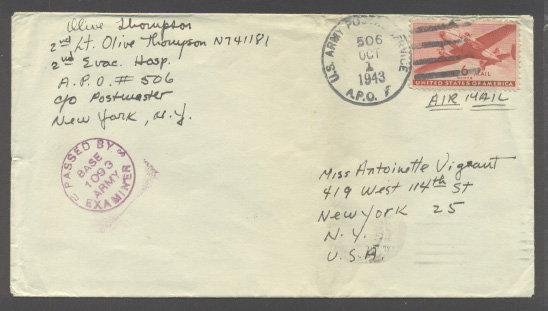 Olive Thompson
2nd Lt. Olive Thompson N741181
2nd Evac. Hosp.
A.P.O. # 506
c/o Postmaster
New York, N.Y.
U.S. ARMY POSTAL SERVICE
506
OCT
1
1943
A.P.O.
6¢ AIR MAIL
UNITED STATES OF AMERICA
AIR MAIL
PASSED BY
BASE
1093
ARMY
EXAMINER
Miss Antoinette Vigeant
419 West 114th St
New York 25
N.Y.
U.S.A